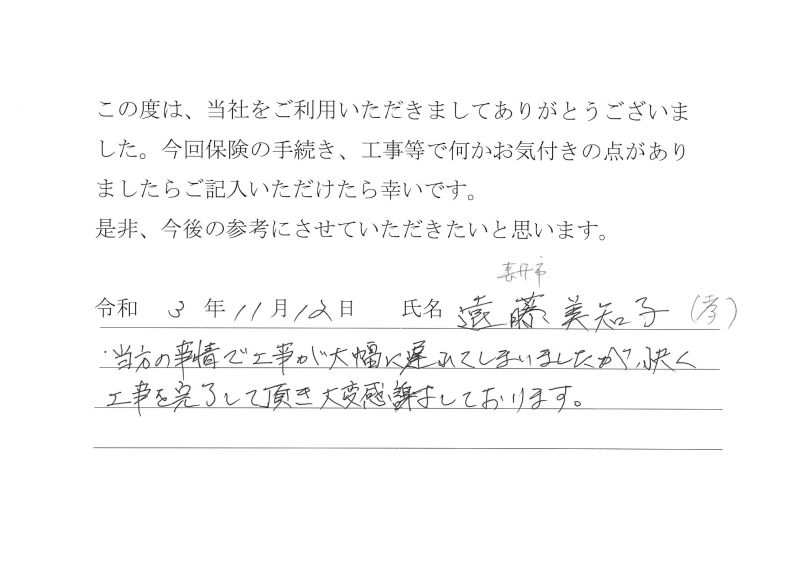 この度は、当社をご利用いただきましてありがとうございま
した。今回保険の手続き、工事等で何かお気付きの点があり
ましたらご記入いただけたら幸いです。
是非、今後の参考にさせていただきたいと思います。
令和 3 年 11 月 12 日 氏名 遠藤美知子 (孝)
・当方の事情で工事が大幅に遅れてしまいましたが、快く
工事を完了して頂き大変感謝をしております。